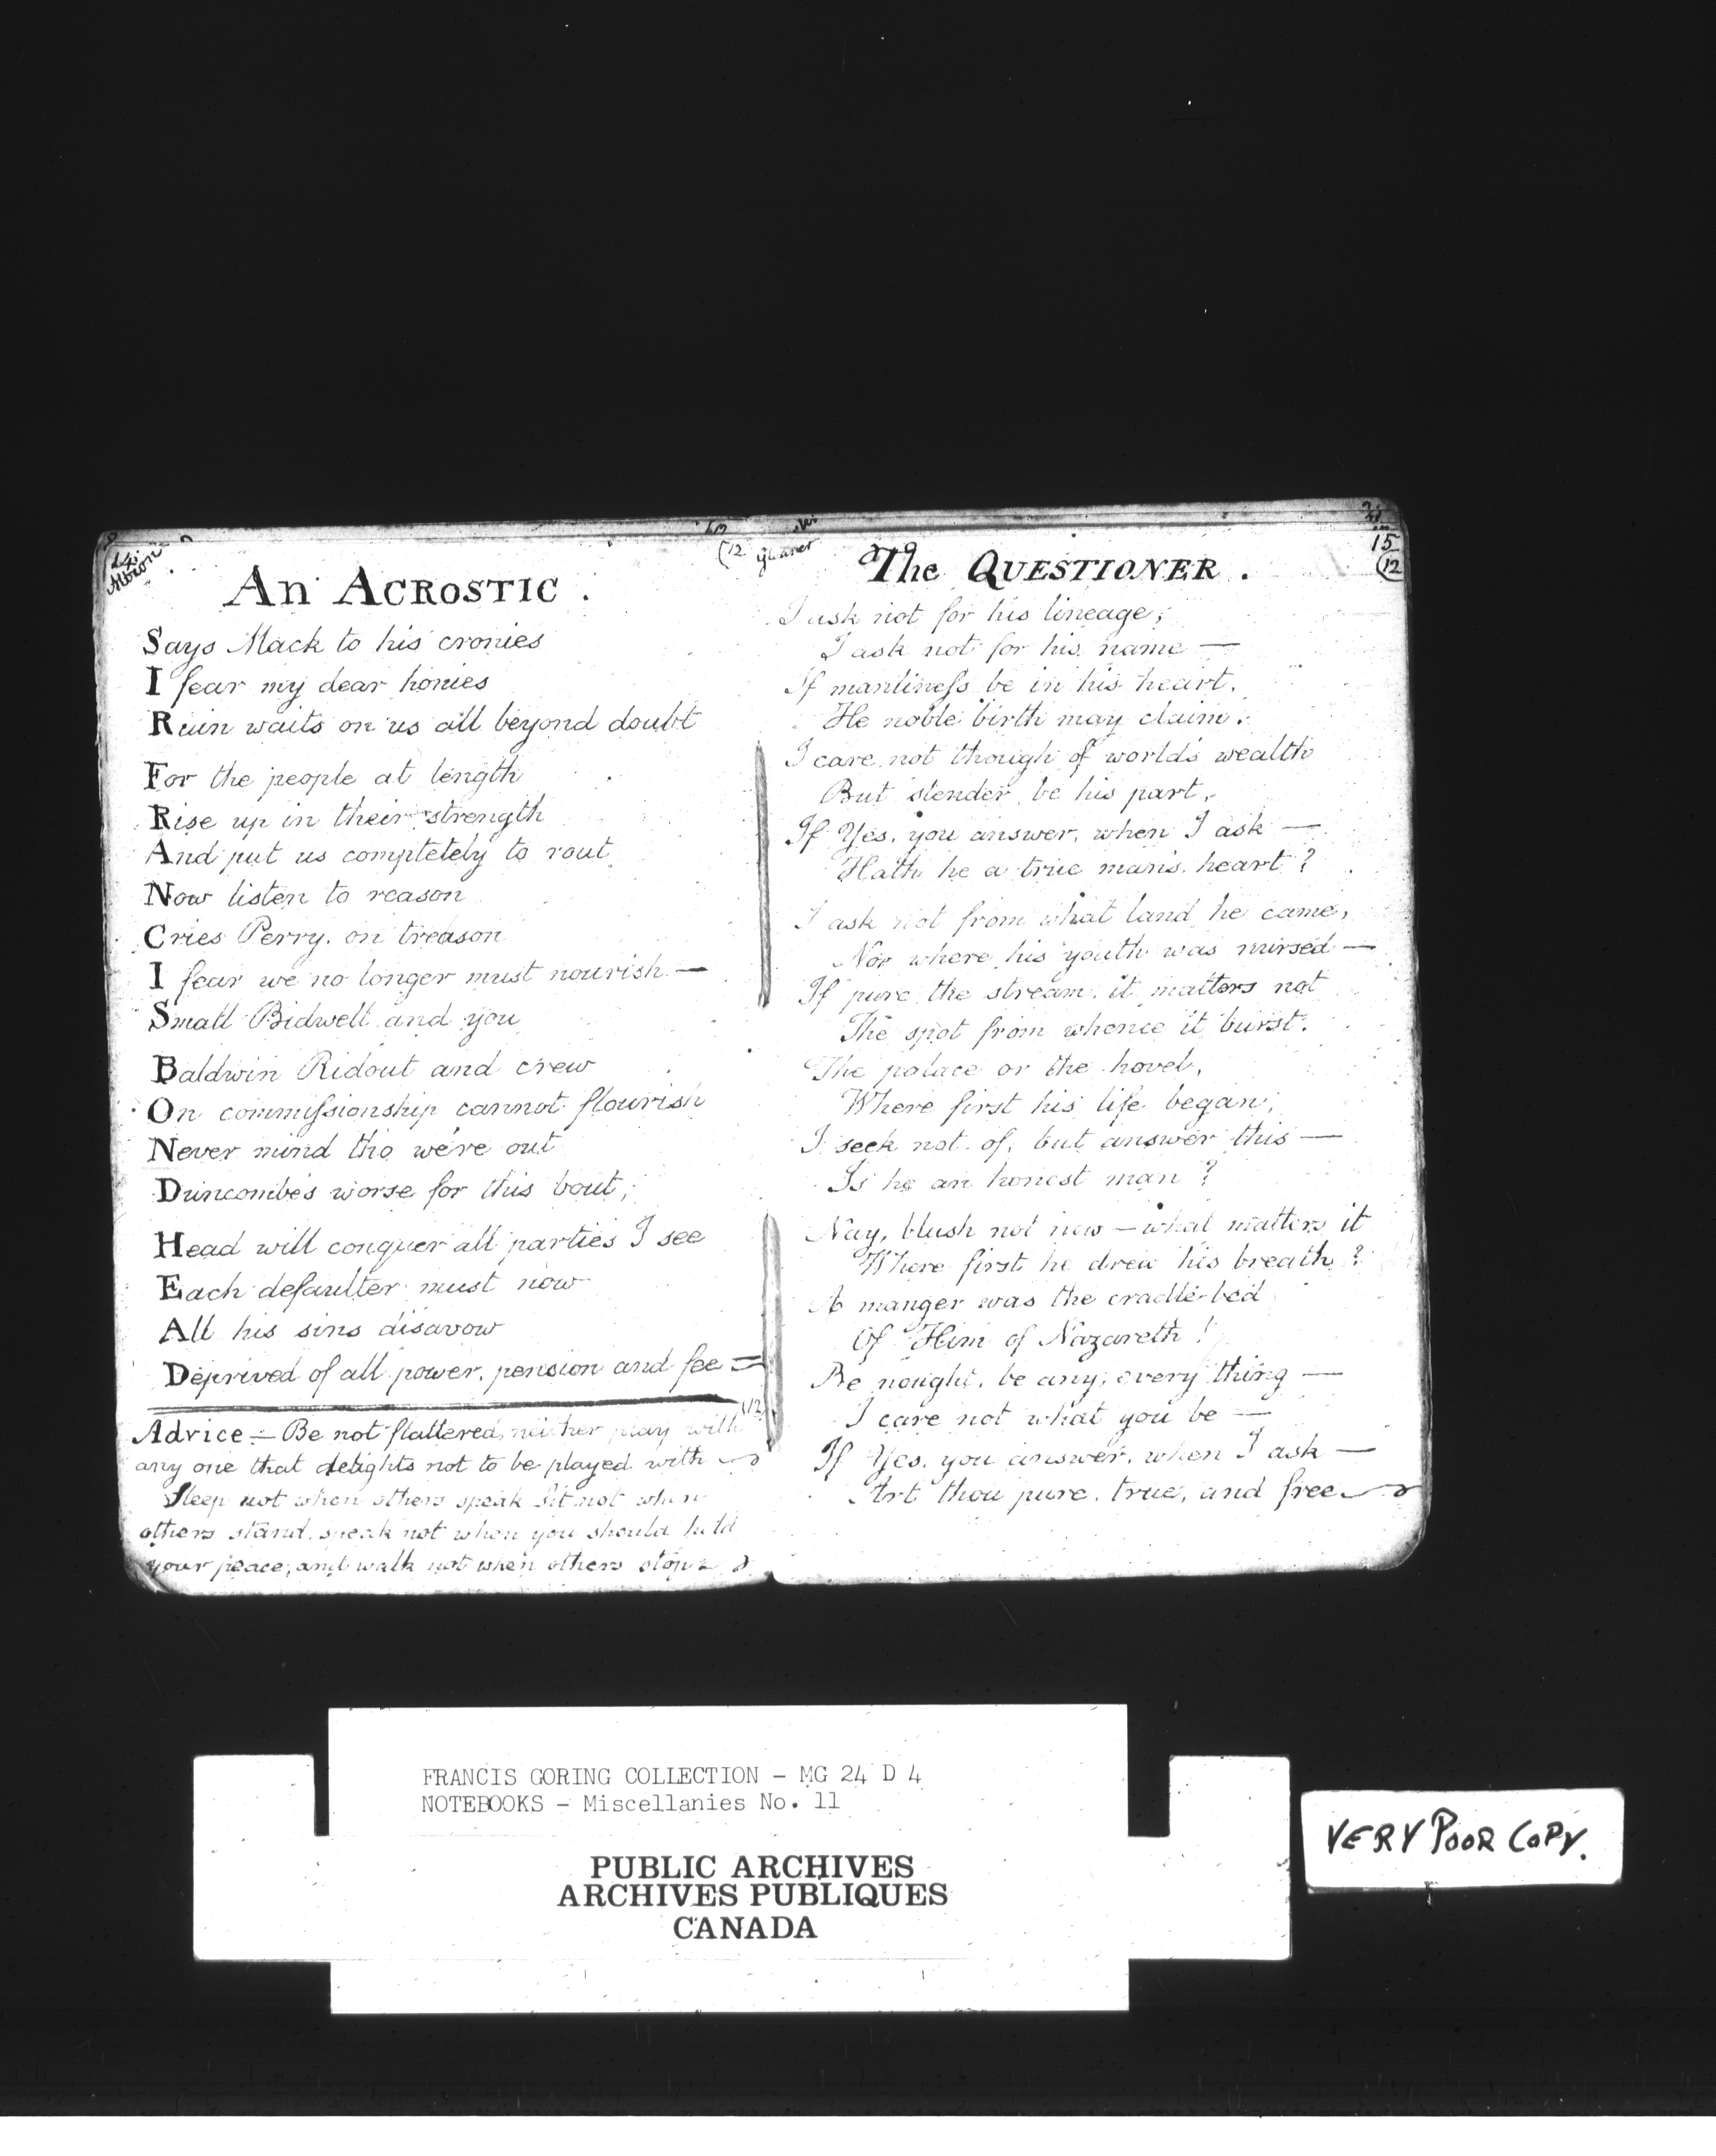 Albion
An ACROSTIC .
Says Mack to his cronies
I fear my dear honies
Ruin waits on us all beyond doubt
For the people at length
Rise up in their strength
And put us completely to rout
Now listen to reason
Cries Perry, on treason
I fear we no longer must nourish —
Small Bidwell and you
Baldwin Ridout and crew
On commiſsionship cannot flourish
Never mind tho we're out
Duncombe's worse for this bout;
Head will conquer all parties I see
Each defaulter must now
All his sins disavow
Deprived of all power, pension and fee
(12)
Advice — Be not flattered, neither play with
any one that delights not to be played with
Sleep not when others speak Sit not when
others stand, speak not when you should hold
your peace; and walk not when others stop
(12 Gleaner
15
(12
The QUESTIONER .
I ask not for his lineage;
I ask not for his name —
If manlineſs be in his heart,
He noble birth may claim.
I care not though of world's wealth
But slender be his part,
If Yes, you answer, when I ask —
Hath he a true man's heart?
I ask not from what land he came,
Nor where his youth was nursed —
If pure the stream, it matters not
The spot from whence it burst.
The palace or the hovel,
Where first his life began,
I seek not of, but answer this —
Is he an honest man?
Nay, blush not now — what matters it
Where first he drew his breath?
A manger was the cradle-bed
Of Him of Nazareth!
Be nought, be any, every thing —
I care not what you be —
If Yes, you answer, when I ask —
Art thou pure, true, and free
FRANCIS GORING COLLECTION - MG 24 D 4
NOTEBOOKS - Miscellanies No. 11
PUBLIC ARCHIVES
ARCHIVES PUBLIQUES
CANADA
VERY POOR COPY.